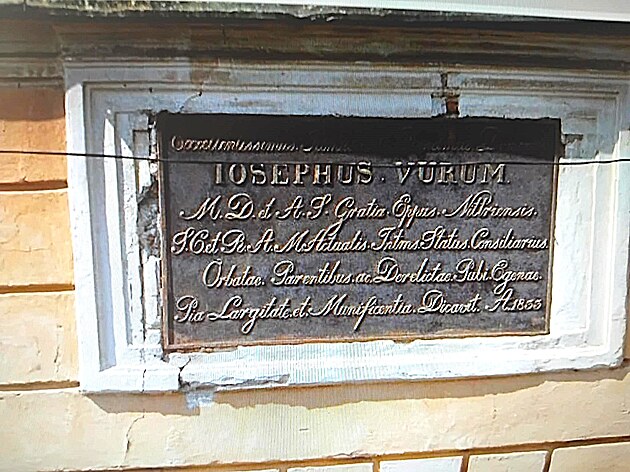 Excellentissimus
IOSEPHUS. VURUM
M. D. et A. S. Gratia Eppus. Nittriensis.
S. C. et R. A. M. Actualis. Intms. Status. Consiliarius.
Orbatae. Parentibus. ac. Derelictae. Pubi. Egenae.
Pia Largitate. et. Munificentia. Dicavit. A. 1833